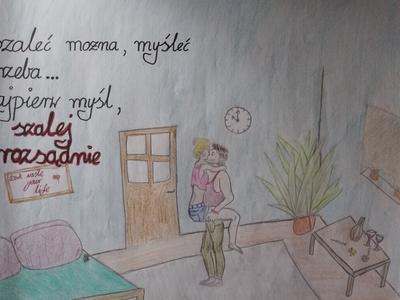 szaleć można, myśleć
rzeba...
ajpierw myśl,
szalej
rozsądnie
waste
your
life